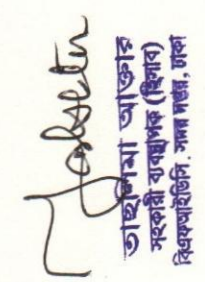 তাহমিনা আক্তার
সহকারী ব্যবস্থাপক (হিসাব)
বিএফআইডিসি, সদর দপ্তর, ঢাকা